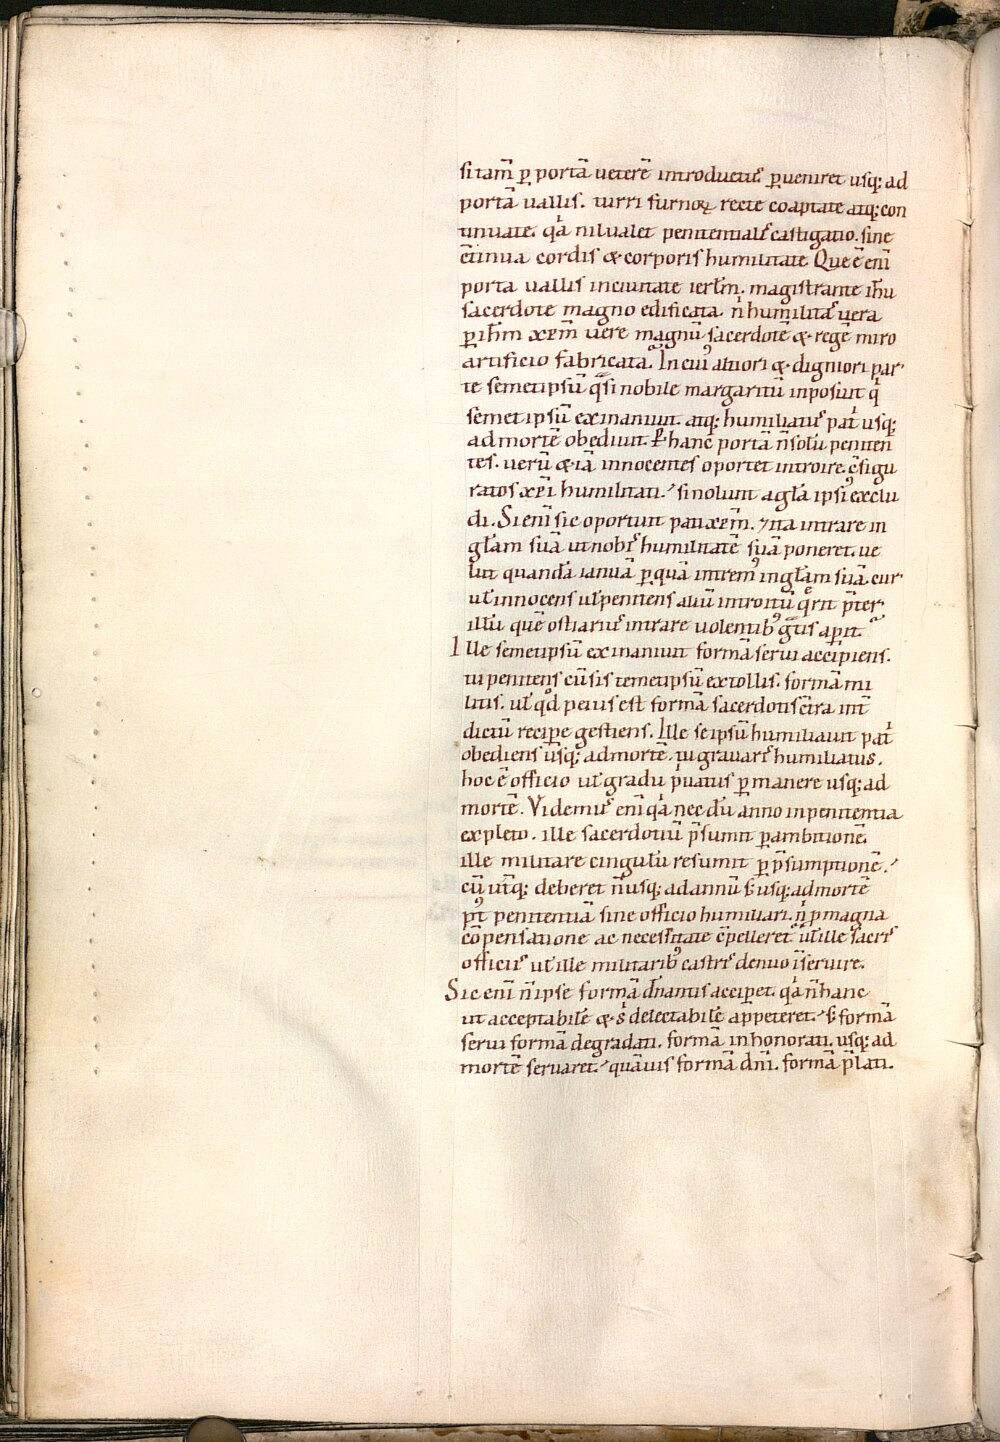 si tam̄ ꝑ portā ueterē introductus ꝑueniret usq; ad
portā uallis. turri furnoꝝ recte coaptate atq; con
tinuate. qa nil ualet penitentialis castigatio. sine
c̄tinua cordis & corporis humilitate. Que ē enī
porta uallis in ciuitate ierlm̄. magistrante ihū
sacerdote magno edificata. n̄ humilitas uera
ꝑ ihm̄ xp̄m uere magnū sacerdotē & regē miro
artificio fabricata. In cui' altiori & digniori par
te semetipsū qᷓsi nobile margaritū inposuit qͥ
semet ipsū exinaniuit. atq; humiliatus patri usq;
ad mortē obediuit. Per hanc portā n̄ solū peniten
tes. uerū & iā innocentes oportet introire. c̄figu
ratos xp̄i humilitati. si nolunt a gl̄a ipsi' exclu
di. Si enī sic oportuit pati xp̄m. ⁊ ita intrare in
gl̄am suā ut nobis humilitatē suā poneret. ue
lut quandā ianuā ꝑ quā intrem' in gl̄am suā. cur
ul̄ innocens ul̄ penitens aliū introitū querit p̄ter
illū quē ostiarius intrare uolentib' gᷓtis aperit.
Ille semetipsū exinaniuit formā serui accipiens.
tu penitens cū sis temetipsū extollis. formā mi
litis. ul̄ qd̄ peius est formā sacerdotis c̄tra int̄
dictū recipe gestiens. Ille se ipsū humiliauit patri
obediens usq; ad mortē. tu grauaris humiliatus.
hoc ē officio ul̄ gradu priuatus ꝑmanere usq; ad
mortē. Videmus enī qa nec dū anno in penitentia
expleto. ille sacerdotiū p̄sumit ꝑ ambitionē.
ille militare cingulū resumit ꝑ p̄sumptionē.
cū ut̄q; deberet n̄ usq; ad annū s; usq; ad mortē
p't penitentiā sine officio humiliari. nͥ ꝑ magna
cōpensatione ac necessitate c̄pelleret' ul̄ ille sacris
officiis ul̄ ille militarib' castris denuo īseruire.
Sic enī n̄ ipse formā dn̄antis acciperet. qa n̄ hanc
ut acceptabilē & sͥ delectabilē appeteret. s; formā
serui formā degradati. formā inhonorati. usq; ad
mortē seruaret. quāuis formā dnī. formā p̄lati.